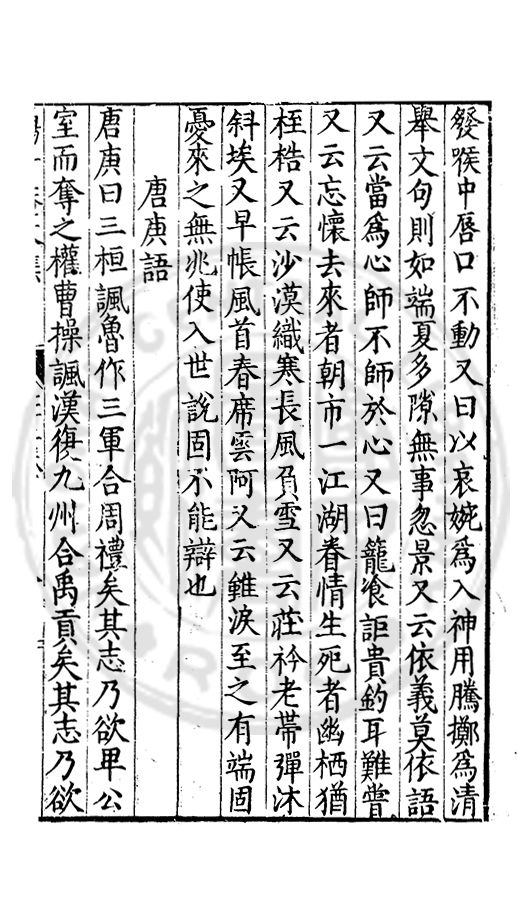 發喉中唇口不動又曰以哀婉爲入神用騰擲爲清
舉文句則如端夏多隙無事忽景又云依義莫依語
又云當爲心師不師於心又曰籠飡詎貴釣耳難嘗
又云忘懷去來者朝市一江湖眷情生死者幽栖猶
桎梏又云沙漠織寒長風負雪又云莊衿老帶彈沐
斜埃又早帳風首春席雲阿又云雖淚至之有端固
憂來之無兆使入世說固不能辯也
唐庚語
唐庚曰三桓諷魯作三軍合周禮矣其志乃欲卑公
室而奪之權曹操諷漢復九州合禹貢矣其志乃欲